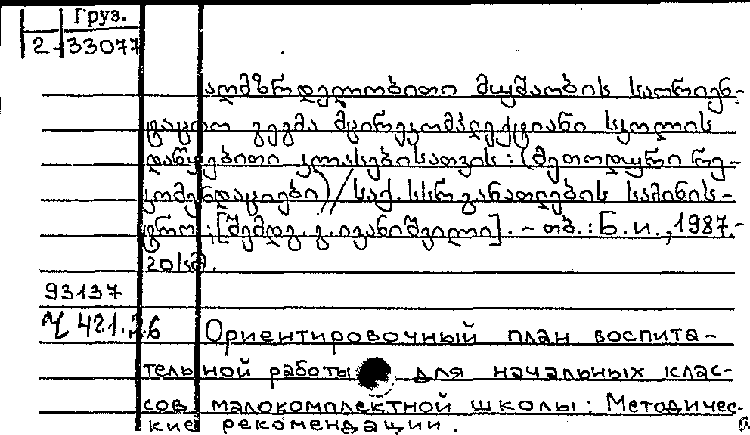 Груз.
2-33077
აღმზრდელობითი მუშაობის საორიენ-
ტაციო გეგმა მცირეკომპლექტიანი სკოლის
დაწყებითი კლასებისათვის: (მეთოდური რე-
კომენდაციები) // საქ. სსრ განათლების სამინის-
ტრო; [შემდგ. გ. ივანიშვილი]. - თბ.: Б. и., 1987.-
20 გვ.
93137
Ч 421.26 Ориентировочный план воспита-
тельной работы для начальных клас-
сов малокомплектной школы: Методичес-
кие рекомендации.